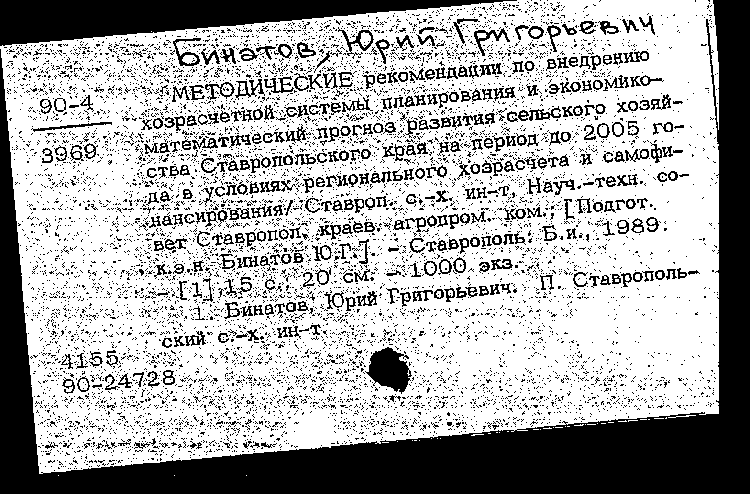 Бинатов, Юрий Григорьевич
90-4
3969
МЕТОДИЧЕСКИЕ рекомендации по внедрению
хозрасчетной системы планирования и экономико-
математический прогноз развития сельского хозяй-
ства Ставропольского края на период до 2005 го-
да в условиях регионального хозрасчета и самофи-
нансирования/ Ставроп. с.-х. ин-т, Науч.-техн. со-
вет Ставропол. краев. агропром. ком.; [Подгот.
к.э.н. Бинатов Ю.Г.]. - Ставрополь: Б.и., 1989.
- [1],15 с.; 20 см. - 1000 экз.
1. Бинатов, Юрий Григорьевич. П. Ставрополь-
ский с.-х. ин-т.
4155
90-24728